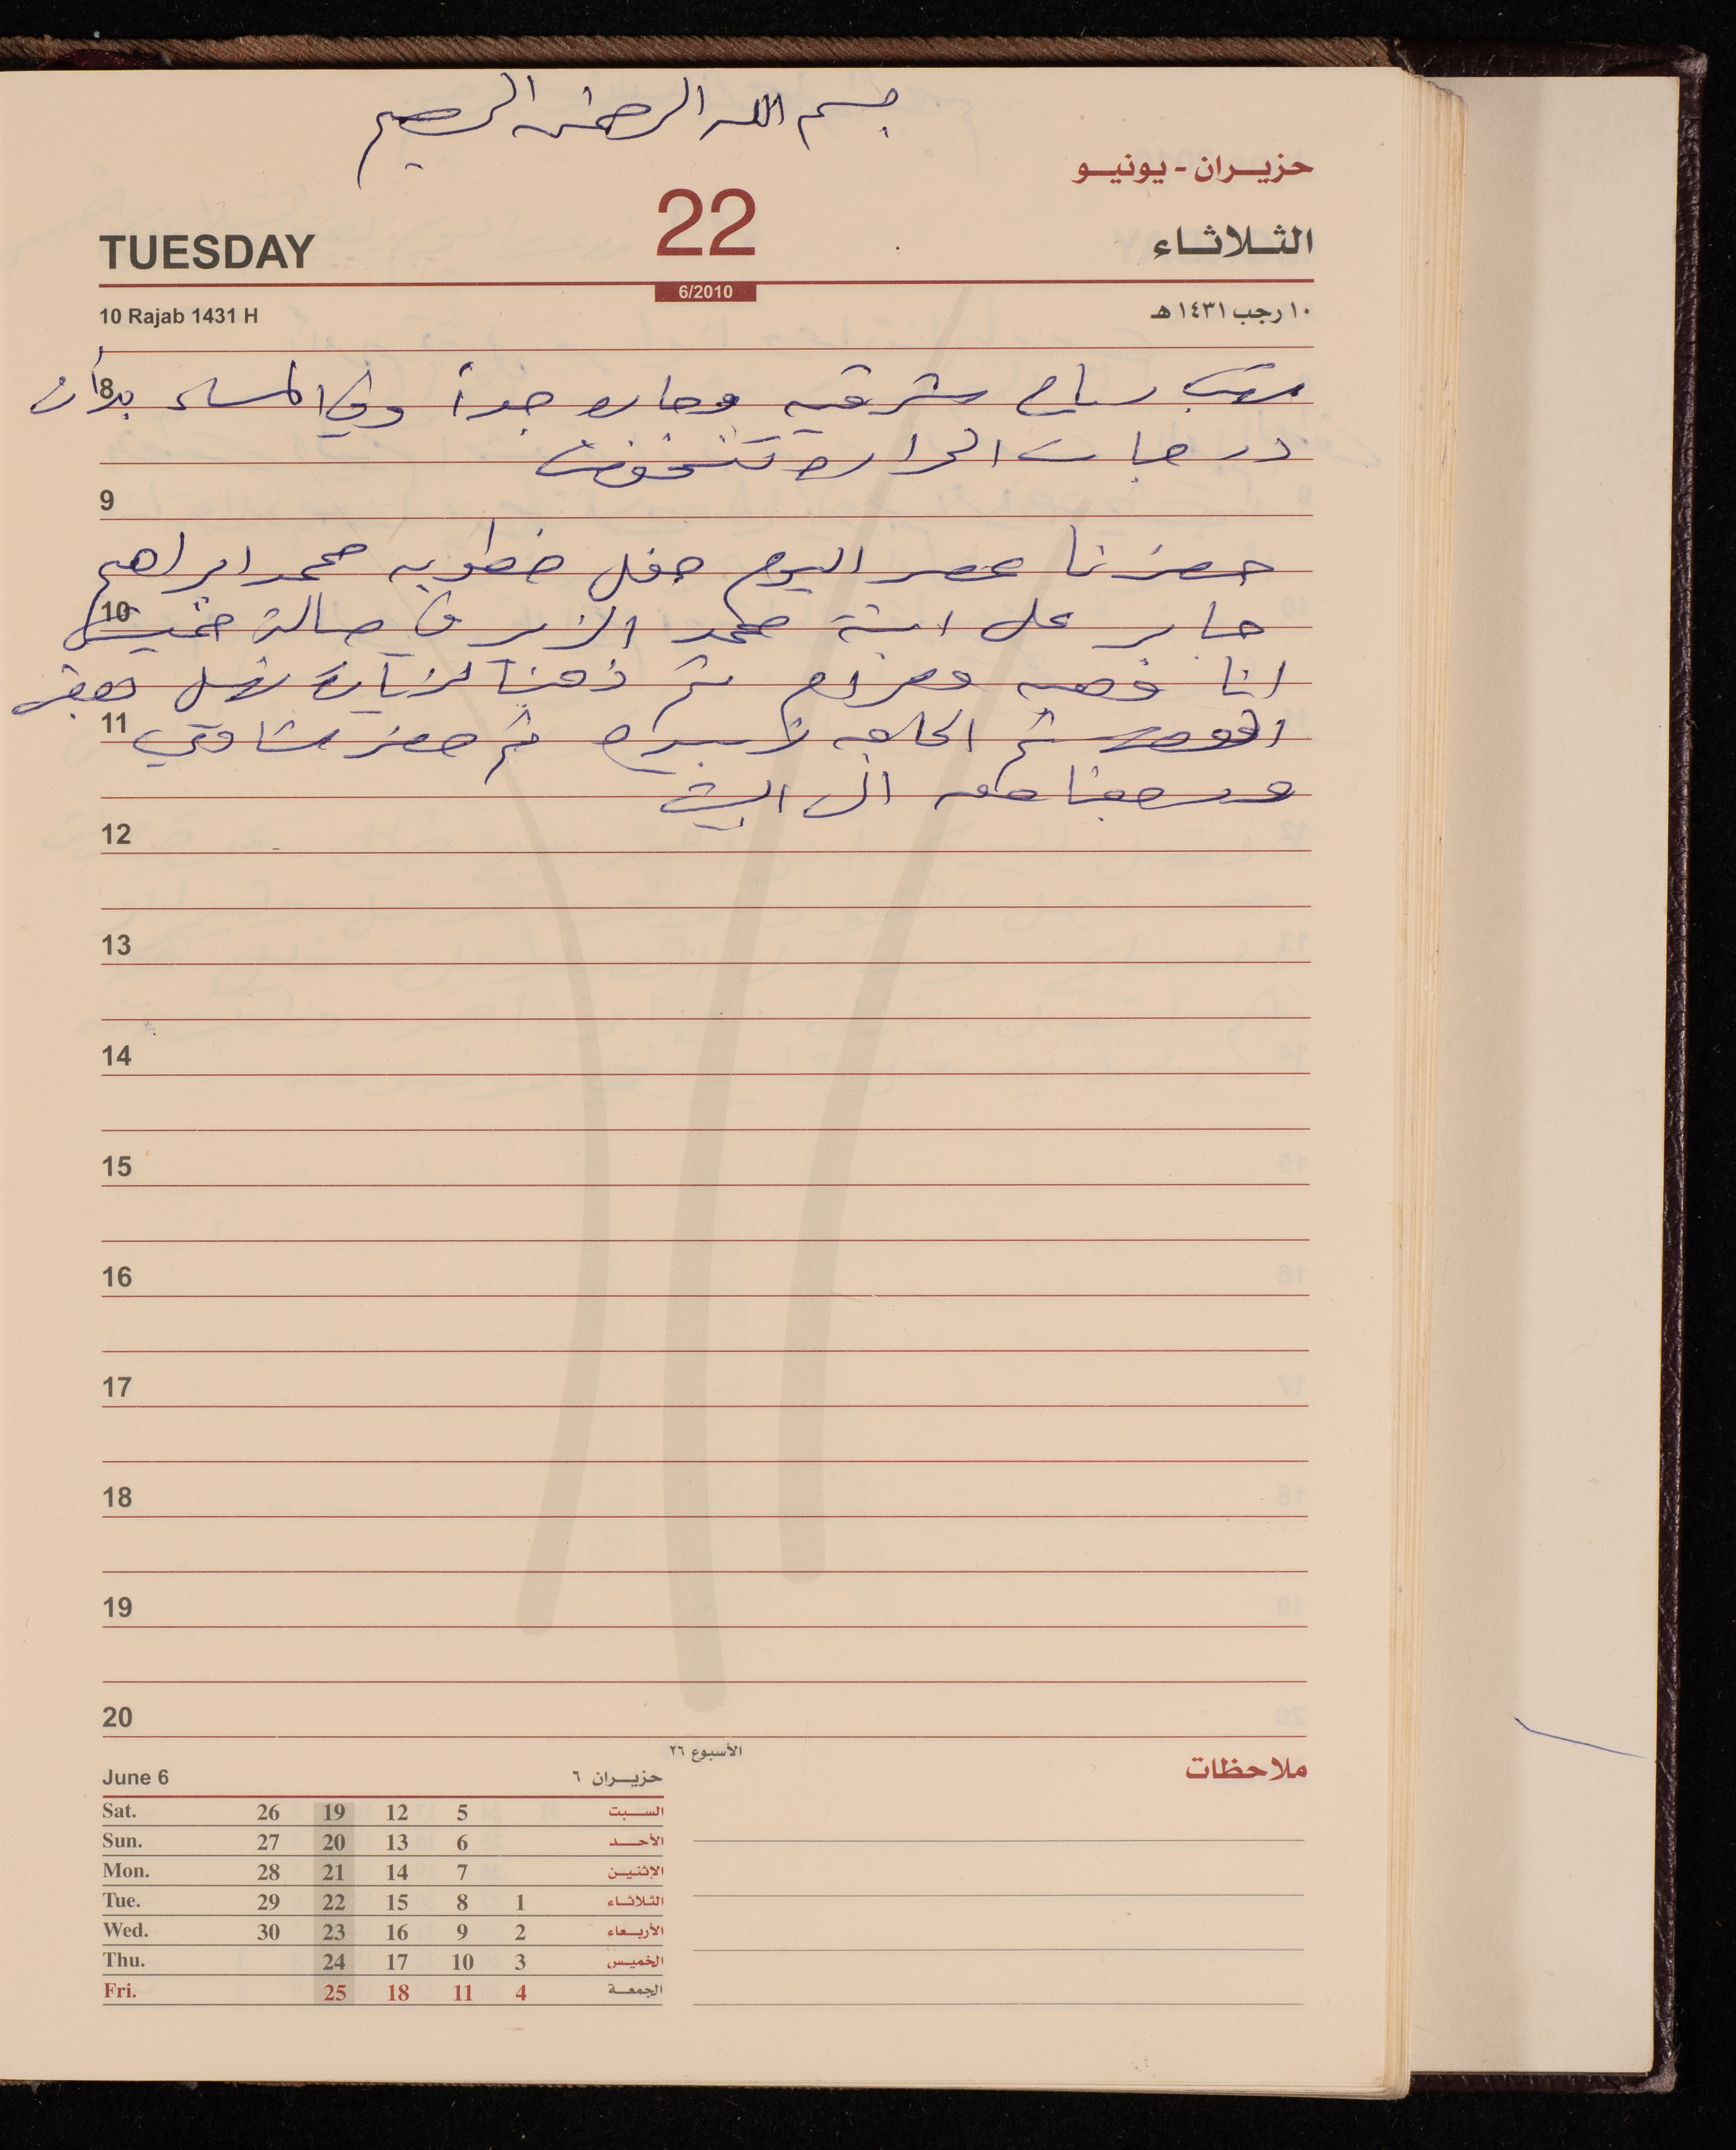 بسم الله الرحمن الرحيم
حزيران - يونيو
TUESDAY 22 الثلاثاء
6/2010
10 Rajab 1431 H ١٠ رجب ١٤٣١ هـ
هبت رياح شرقيه وحاره جداً وفي المساء بدأت
8
درجات الحراره تنخفض
9
حضرنا عصر اليوم حفل خطوبه محمد ابراهيم
جابر على ابنة محمد الزير في صالة
10
انا ثم ذهبنا لزيارة
ثم ثم حضر شادي
11
ورجعنا معه الى البيت
12
13
14
15
16
17
18
19
20
الأسبوع ٢٦
ملاحظات
June 6 حزيران ٦
Sat. 26 19 12 5 السبت
Sun. 27 20 13 6 الأحد
Mon. 28 21 14 7 الإثنين
Tue. 29 22 15 8 1 الثلاثاء
Wed. 30 23 16 9 2 الأربعاء
Thu. 24 17 10 3 الخميس
Fri. 25 18 11 4 الجمعة